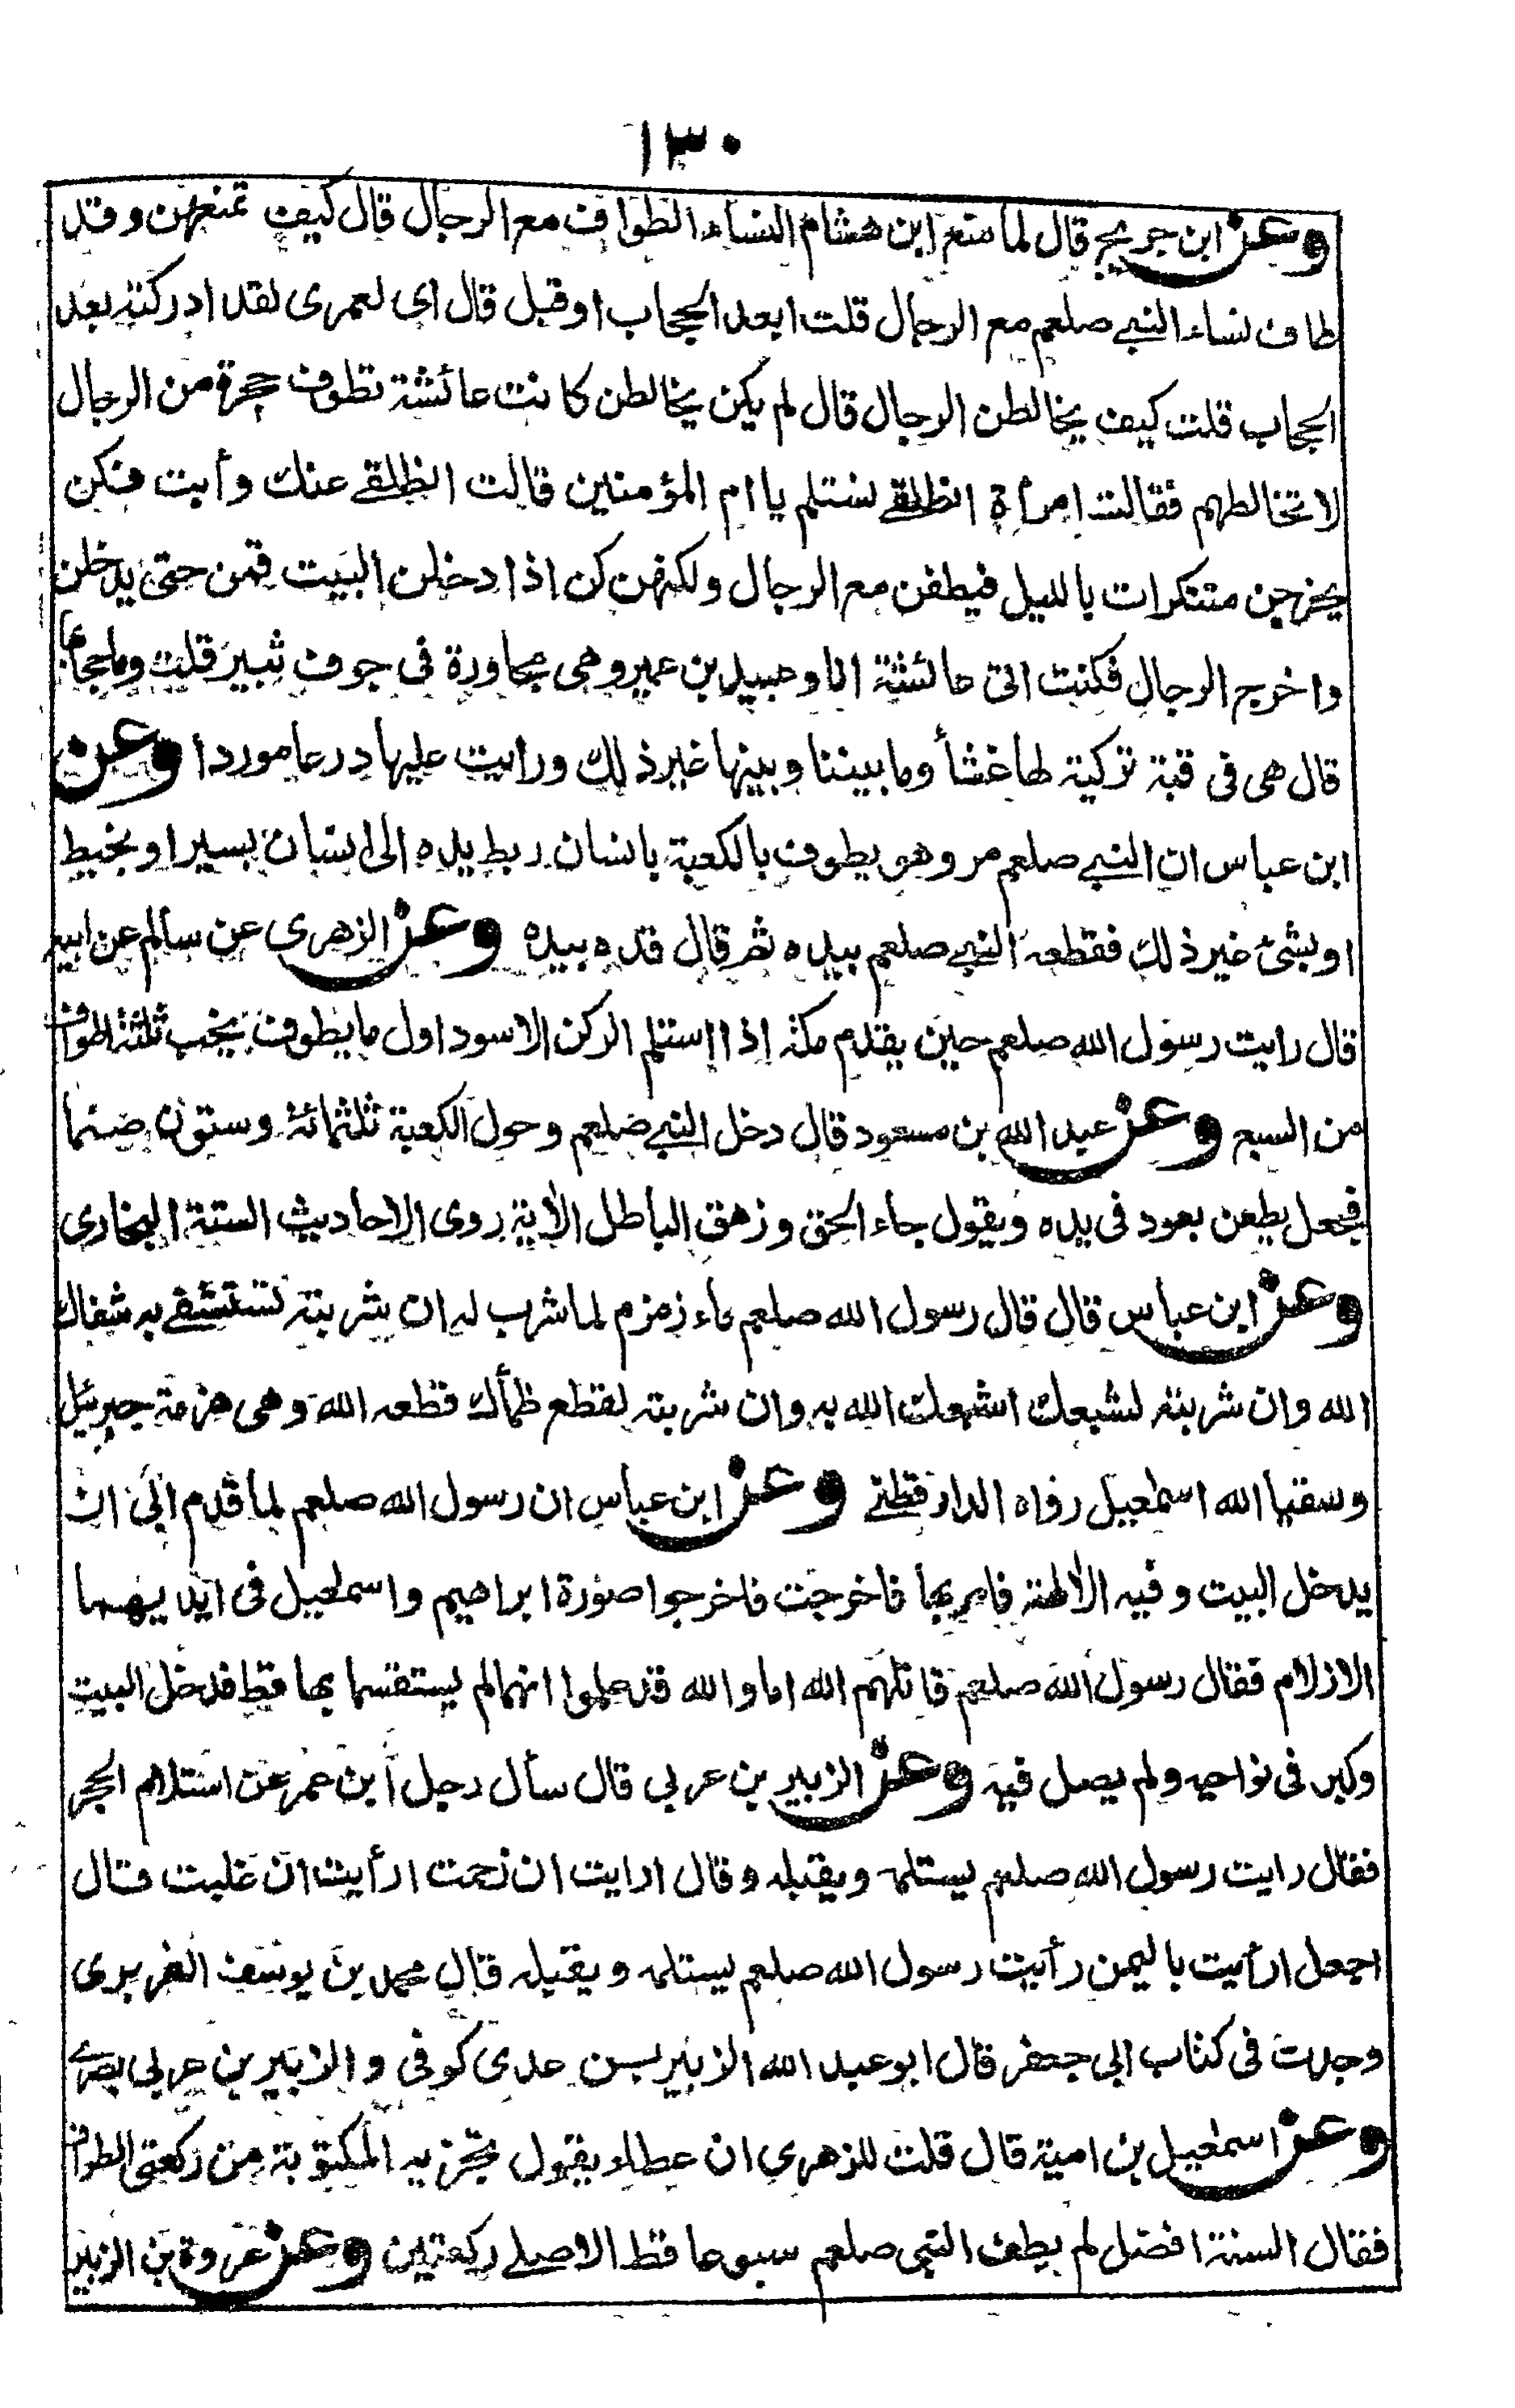 ١٣٠
وعن ابن جريج قال لما منع ابن هشام النساء الطواف مع الرجال قال كيف تمنعهن وقد
طاف نساء النبي صلعم مع الرجال قلت ابعد الحجاب او قبل قال اى لعمرى لقد ادركته بعد
الحجاب قلت كيف يخالطن الرجال قال لم يكن يخالطن كانت عائشة تطوف حجرة من الرجال
لا تخالطهم فقالت امرأة انطلقي نستلم يا ام المؤمنين قالت انطلقي عنك وأبت فكن
يخرجن متنكرات بالليل فيطفن مع الرجال ولكنهن كن اذا دخلن البيت قمن حتى يدخلن
واخرج الرجال فكنت اتى عائشة انا وعبيد بن عمير وهى مجاورة فى جوف ثبير قلت وما حجابها
قال هى فى قبة تركية لها غشأ وما بيننا وبينها غير ذلك ورايت عليها درعا موردا وعن
ابن عباس ان النبي صلعم مر وهو يطوف بالكعبة بانسان ربط يده الى انسان بسير او بخيط
او بشئ غير ذلك فقطعه النبي صلعم بيده ثم قال قده بيده وعن الزهرى عن سالم عن ابيه
قال رايت رسول الله صلعم حين يقدم مكة اذا استلم الركن الاسود اول ما يطوف يخب ثلثة اطواف
من السبع وعن عبد الله بن مسعود قال دخل النبي صلعم وحول الكعبة ثلثمائة وستون صنما
فجعل يطعن بعود فى يده ويقول جاء الحق وزهق الباطل الأية روى الاحاديث الستة البخارى
وعن ابن عباس قال قال رسول الله صلعم ماء زمزم لما شرب له ان شربته تستشفي به شفاك
الله وان شربته لشبعك اشبعك الله به وان شربته لقطع ظمأك قطعه الله وهى هزمة جبرئيل
وسقيا الله اسمعيل رواه الدارقطني وعن ابن عباس ان رسول الله صلعم لما قدم ابى ان
يدخل البيت وفيه الألهة فامر بها فاخرجت فاخرجوا صورة ابراهيم واسمعيل فى ايديهما
الازلام فقال رسول الله صلعم قاتلهم الله اما والله قد علموا انهما لم يستقسما بها قط فدخل البيت
وكبر فى نواحيه ولم يصل فيه وعن الزبير بن عربى قال سأل رجل ابن عمر عن استلام الحجر
فقال رايت رسول الله صلعم يستلمه ويقبله وقال ارايت ان زحمت ارأيت ان غلبت قال
اجعل ارأيت باليمن رأيت رسول الله صلعم يستلمه ويقبله قال محمد بن يوسف الفربرى
وجدت فى كتاب ابى جعفر قال ابو عبد الله الزبير بن عدى كوفى والزبير بن عربى بصرے
وعن اسمعيل بن امية قال قلت للزهري ان عطاء يقول تجزيه المكتوبة من ركعتى الطواف
فقال السنة افضل لم يطف النبى صلعم سبوعا قط الا صلے ركعتين وعن عروة بن الزبير